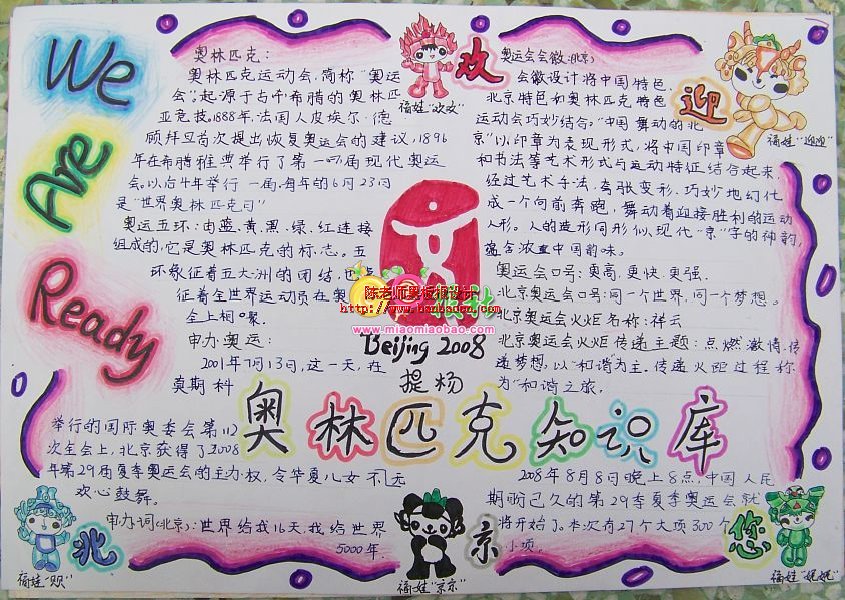 We
Are
Ready
奥林匹克:
奥林匹克运动会,简称"奥运
会",起源于古希腊的奥林匹
亚竞技,1888年,法国人皮埃尔·德
顾拜旦首次提出恢复奥运会的建议,1896
年在希腊雅典举行了第一届现代奥运
会.以后4年举行一届.每年的6月23日
是"世界奥林匹克日"
奥运五环:由蓝.黄.黑.绿.红连接
组成的,它是奥林匹克的标志。五
环象征着五大洲的团结,也
征着全世界运动员在奥
会上相聚.
申办奥运:
2001年7月13日,这一天,在
莫斯科
举行的国际奥委会第112
次全会上,北京获得了2008
年第29届夏季奥运会的主办权,令华夏儿女不无
欢心鼓舞。
申办词(北京):世界给我16天,我给世界
5000年.
福娃"欢欢"
欢
奥运会会徽:(北京)
会徽设计将中国特色.
北京特色如奥林匹克特色
运动会巧妙结合。"中国舞动的北
京"以印章为表现形式,将中国印章
和书法等艺术形式与运动特征结合起来,
经过艺术手法,夸张变形,巧妙地幻化
成一个向前奔跑,舞动着迎接胜利的运动
人形。人的造形同形似现代"京"字的神韵,
蕴含浓重中国韵味。
奥运会口号:更高.更快.更强.
北京奥运会口号:同一个世界,同一个梦想。
北京奥运会火炬名称:祥云
北京奥运会火炬传递主题:点燃激情,传
递梦想,以"和谐"为主,传递火炬过程称
为"和谐之旅.
迎
福娃"迎迎"
陈老师黑板报设计
http://www.banbaoba.com
www.miaomiaobao.com
Beijing 2008
提杨
奥林匹克知识库
2008年8月8日晚上8点,中国人民
期盼已久的第29季夏季奥运会就
将开始了。本次有27个大项300个
小项.
北
福娃"贝"
京
福娃"京京"
您
福娃"妮妮"